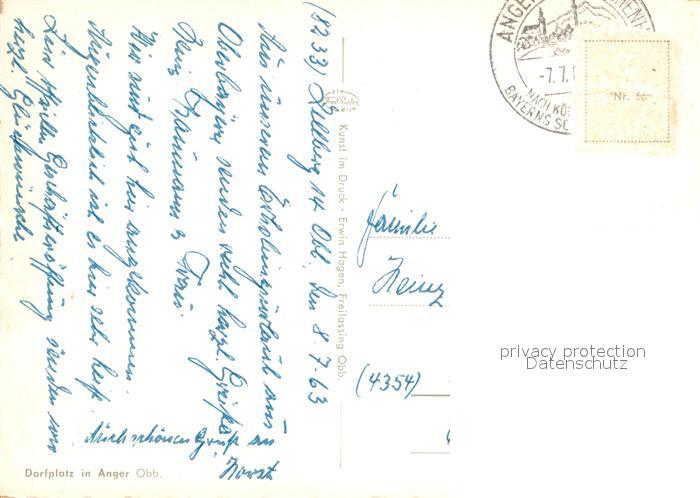 (8233) Lillberg 14 Obb. den 8.7.63
Aus unserem Erholungsurlaub aus
Oberbayern senden recht herzl. Grüße
Heinz Baumann & Frau.
Wir sind gut hier angekommen.
Augenblicklich ist es hier sehr heiß
Zur Geschäftseröffnung senden wir
herzl. Glückwünsche
Auch schönen Gruß an
Horst
Dorfplatz in Anger Obb.
Kunst im Druck · Erwin Hagen, Freilassing Obb.
ANGER
-7.7.6
NACH KÖ
BAYERNS SC
Nr. 56
Familie
Heinz
(4354)
privacy protection
Datenschutz